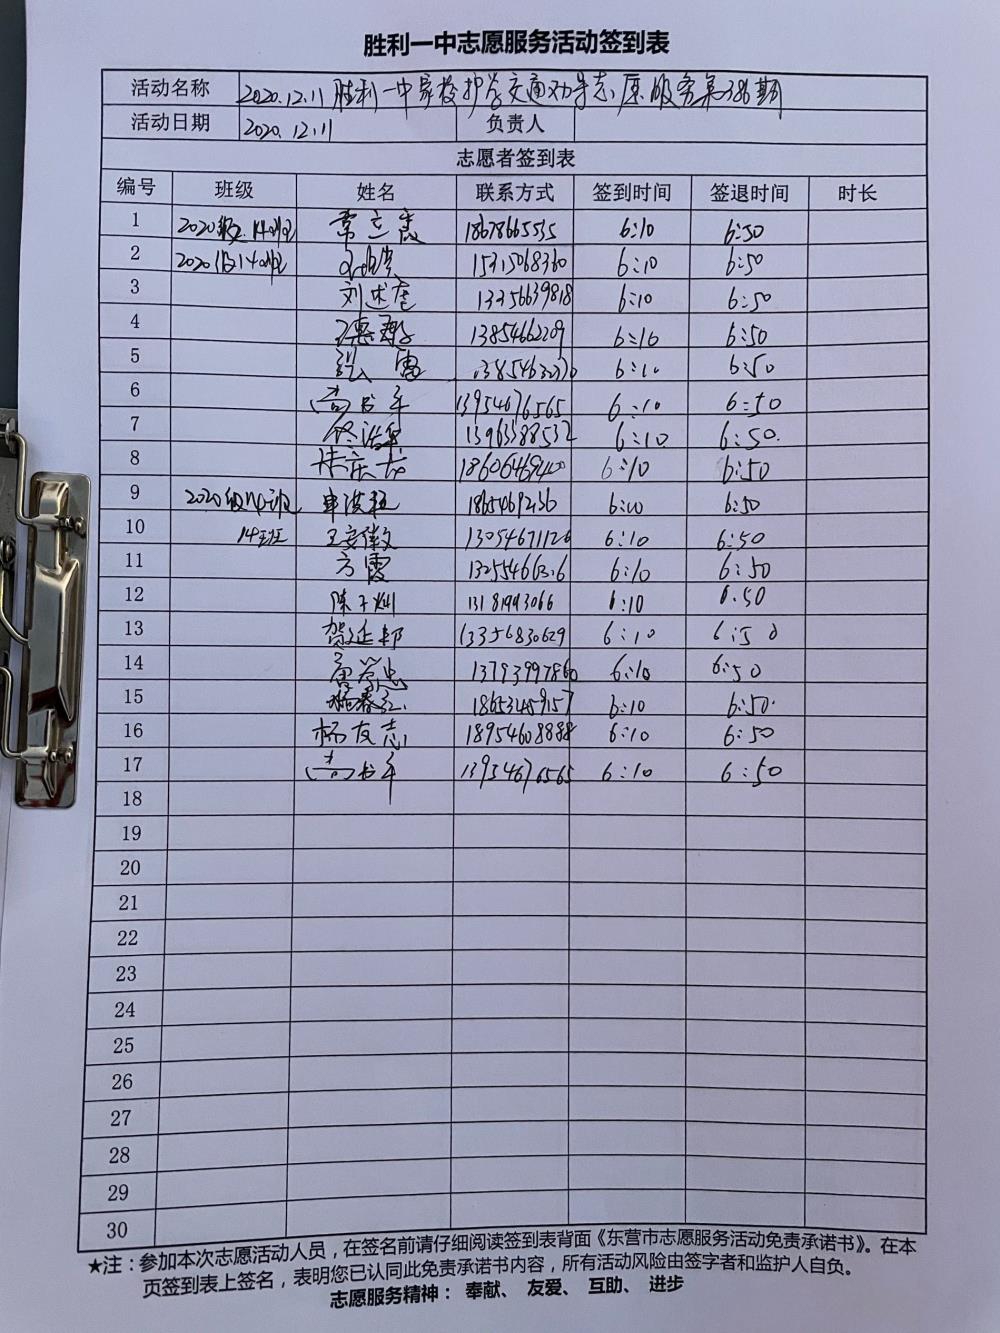 胜利一中志愿服务活动签到表
活动名称 2020.12.11 胜利一中家校护学交通劝导志愿服务第386期
活动日期 2020.12.11 负责人
志愿者签到表
编号 班级 姓名 联系方式 签到时间 签退时间 时长
1 2020级14班 常立霞 18678665535 6:10 6:50
2 2020级14班 15315068360 6:10 6:50
3 刘述奎 13356639818 6:10 6:50
4 13854662209 6:10 6:50
5 6:10 6:50
6 尚书军 13954676565 6:10 6:50
7 13963388532 6:10 6:50
8 18606469440 6:10 6:50
9 2020级14班 18654692136 6:10 6:50
10 14班 13054671126 6:10 6:50
11 方霞 6:10 6:50
12 13181993066 6:10 6:50
13 贺廷邦 13356830629 6:10 6:50
14 13793997860 6:10 6:50
15 18653459157 6:10 6:50
16 杨友志 18954608888 6:10 6:50
17 尚书军 13954676565 6:10 6:50
18
19
20
21
22
23
24
25
26
27
28
29
30
★注：参加本次志愿活动人员，在签名前请仔细阅读签到表背面《东营市志愿服务活动免责承诺书》。在本
页签到表上签名，表明您已认同此免责承诺书内容，所有活动风险由签字者和监护人自负。
志愿服务精神：奉献、友爱、互助、进步